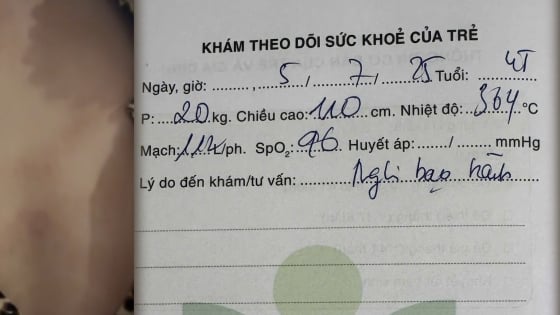 KHÁM THEO DÕI SỨC KHOẺ CỦA TRẺ
Ngày, giờ: ........, ...5.../...7.../...25... Tuổi: ...4T...
P:...20...kg. Chiều cao:...110... cm. Nhiệt độ:...36,4...°C
Mạch:...112.../ph. SpO₂:...96... Huyết áp:....../ ....... mmHg
Lý do đến khám/tư vấn: ............Nghi bạo hành............